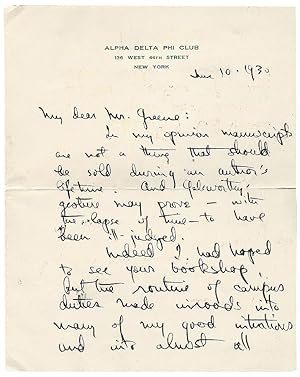 ALPHA DELTA PHI CLUB
136 WEST 44TH STREET
NEW YORK
June 10 · 1930
My dear Mr. Greene:
In my opinion manuscripts
are not a thing that should
be sold during an author's
lifetime. And Galsworthy's
gesture may prove — with
the lapse of time — to have
been ill judged.
Indeed I had hoped
to see your bookshop,
but the routine of campus
duties made inroads into
many of my good intentions
and into almost all